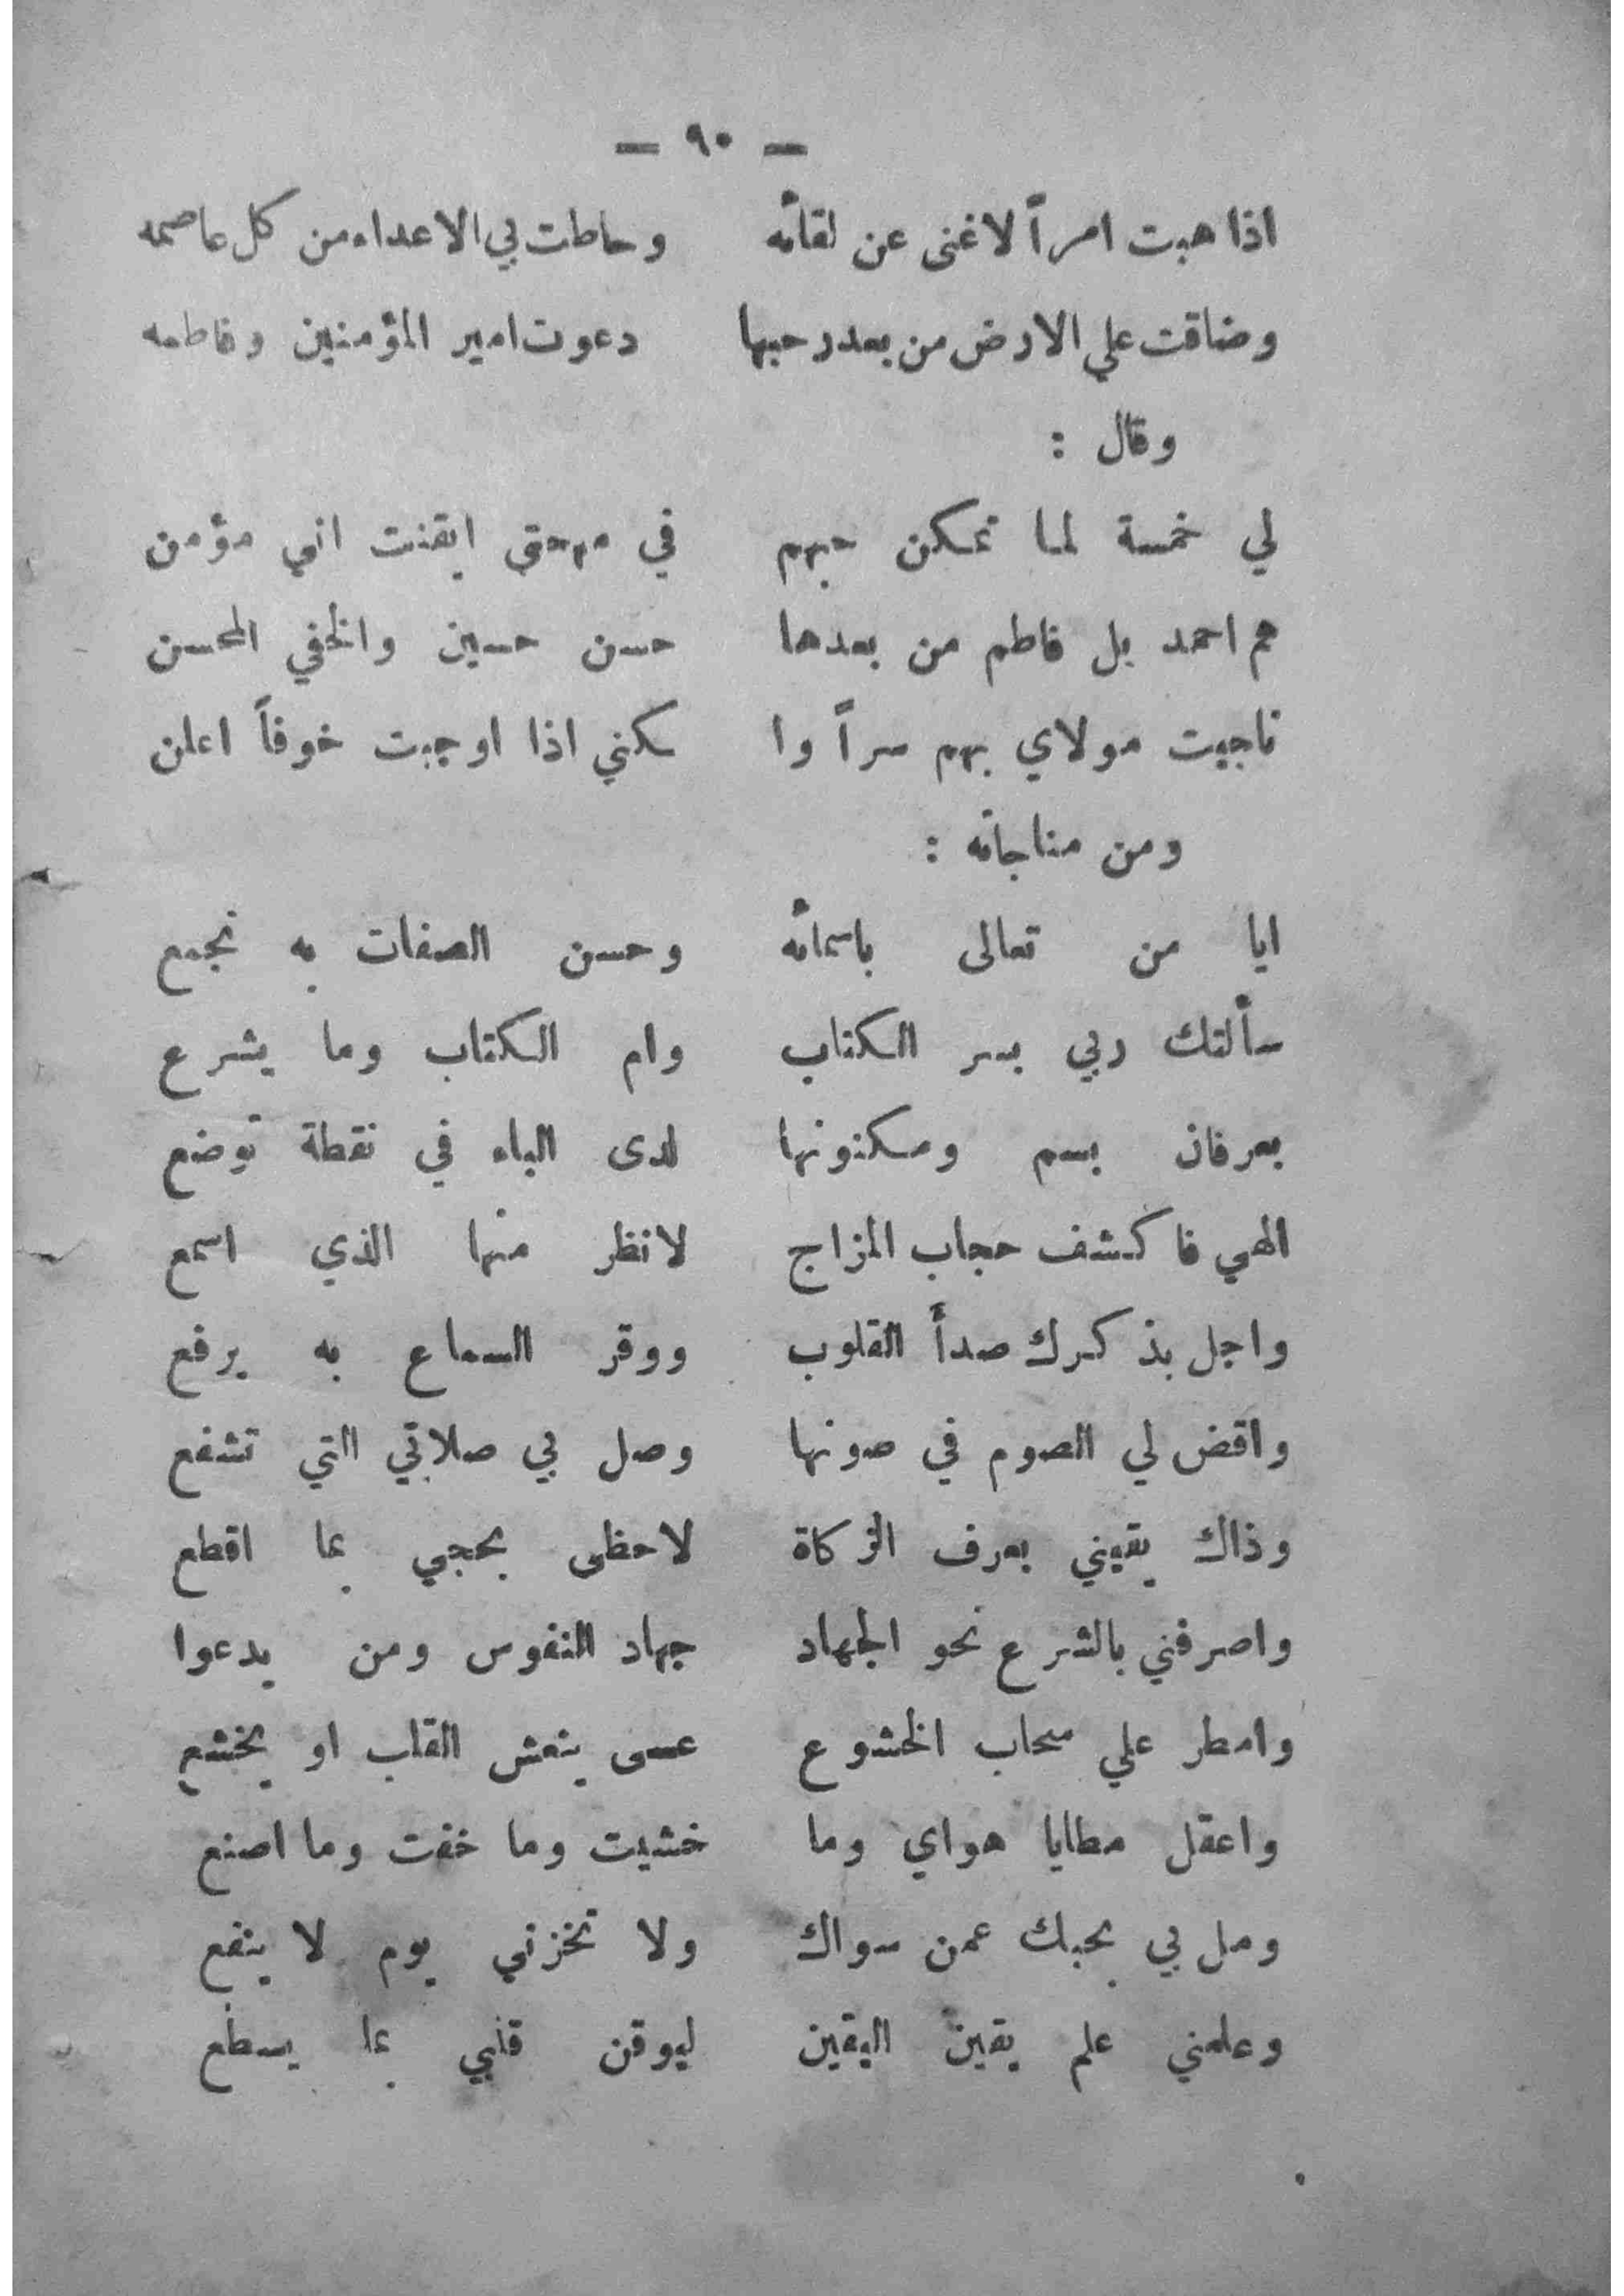 — ٩٠ —
اذا هبت امراً لا غنى عن لقائه وحاطت بي الاعداء من كل عاصمه
وضاقت علي الارض من بعد رحبها دعوت امير المؤمنين وفاطمه
وقال :
لي خمسة لما تمكن حبهم في مهجتي ايقنت اني مؤمن
هم احمد بل فاطم من بعدها حسن حسين والخفي المحسن
ناجيت مولاي بهم سراً وا سكنني اذا اوجبت خوفاً اعلن
ومن مناجاته :
ايا من تعالى باسمائه وحسن الصفات به تجمع
سألتك ربي بسر الكتاب وام الكتاب وما يشرع
بعرفان بسم ومكنونها لدى الباء في نقطة توضع
الهي فاكشف حجاب المزاج لانظر منها الذي اسمع
واجل بذكرك صدأ القلوب ووقر السماع به يرفع
واقض لي الصوم في صونها وصل بي صلاتي التي تشفع
وذاك يقيني بعرف الزكاة لاحظى بحجي بما اقطع
واصرفني بالشرع نحو الجهاد جهاد النفوس ومن يدعوا
وامطر علي سحاب الخشوع عسى ينعش القلب او يخشع
واعقل مطايا هواي وما خشيت وما خفت وما اصنع
ومل بي بحبك عمن سواك ولا تخزني يوم لا ينفع
وعلمني علم يقين اليقين ليوقن قلبي بما يسطع